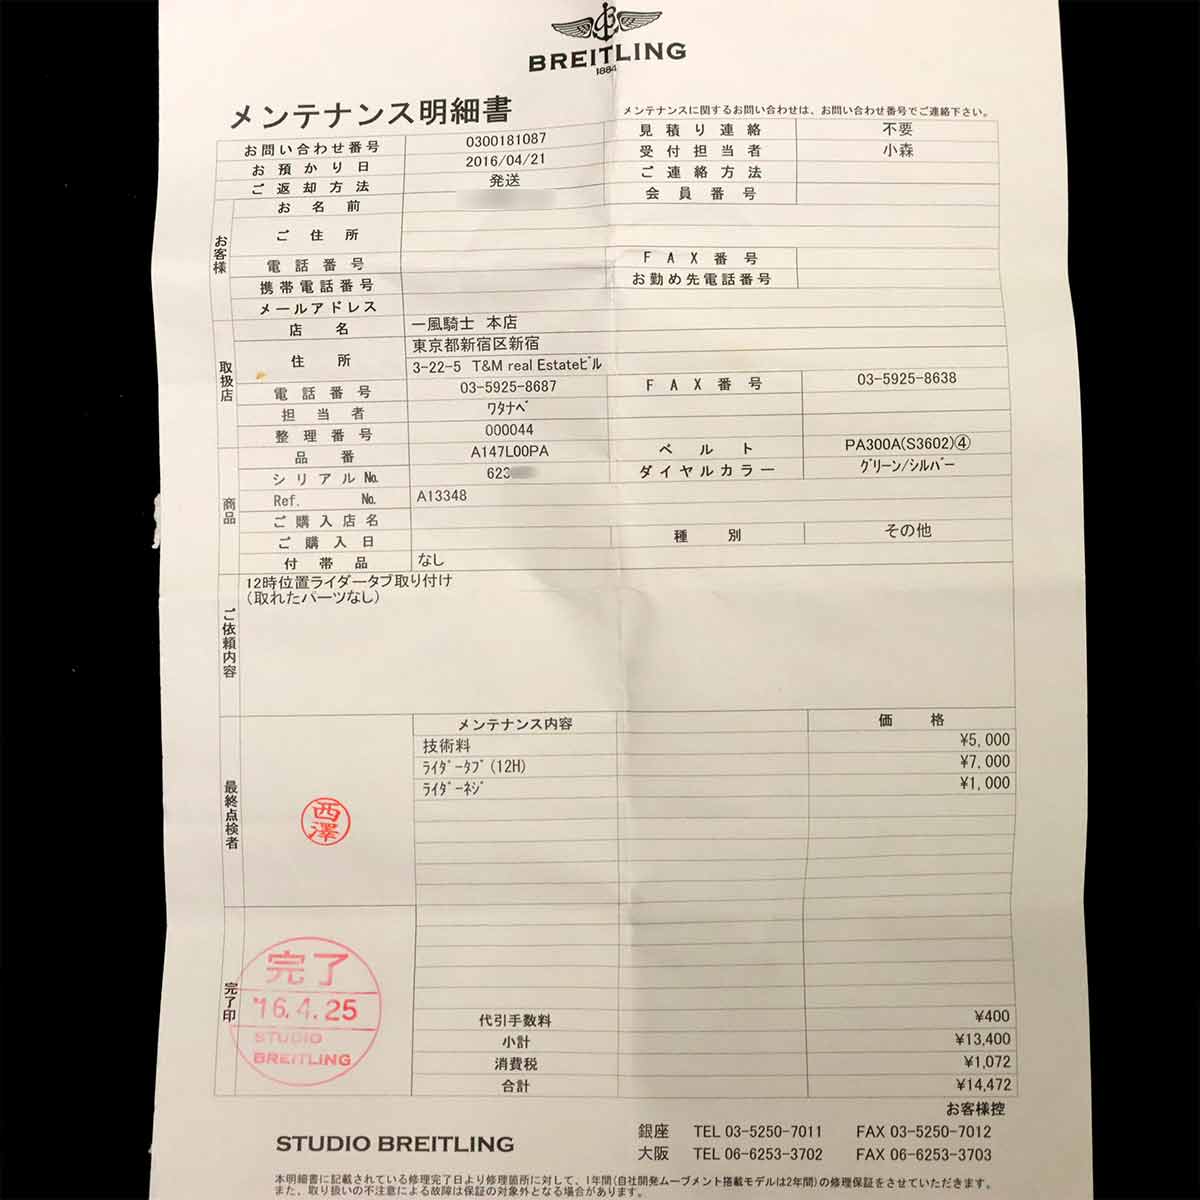 BREITLING
1884
メンテナンス明細書
メンテナンスに関するお問い合わせは、お問い合わせ番号でご連絡下さい。
お問い合わせ番号 0300181087 見積り連絡 不要
お預かり日 2016/04/21 受付担当者 小森
ご返却方法 発送 ご連絡方法
お客様 お名前 会員番号
ご住所
電話番号 FAX番号
携帯電話番号 お勤め先電話番号
メールアドレス
取扱店 店名 一風騎士 本店
住所 東京都新宿区新宿
3-22-5 T&M real Estateﾋﾞﾙ
電話番号 03-5925-8687 FAX番号 03-5925-8638
担当者 ﾜﾀﾅﾍﾞ
整理番号 000044
商品 品番 A147L00PA ベルト PA300A(S3602)④
シリアル№ 623 ダイヤルカラー ｸﾞﾘｰﾝ/ｼﾙﾊﾞｰ
Ref. № A13348
ご購入店名
ご購入日 種別 その他
付帯品 なし
ご依頼内容 12時位置ライダータブ取り付け
(取れたパーツなし)
メンテナンス内容 価格
技術料 ¥5,000
ﾗｲﾀﾞｰﾀﾌﾞ(12H) ¥7,000
ﾗｲﾀﾞｰﾈｼﾞ ¥1,000
最終点検者
西澤
完了印
完了
'16.4.25
STUDIO
BREITLING
代引手数料 ¥400
小計 ¥13,400
消費税 ¥1,072
合計 ¥14,472
お客様控
STUDIO BREITLING
銀座 TEL 03-5250-7011 FAX 03-5250-7012
大阪 TEL 06-6253-3702 FAX 06-6253-3703
本明細書に記載されている修理完了日より修理箇所に対して、1年間(自社開発ムーブメント搭載モデルは2年間)の修理保証をさせていただきます。
また、取り扱いの不注意による故障は保証の対象外となる場合があります。